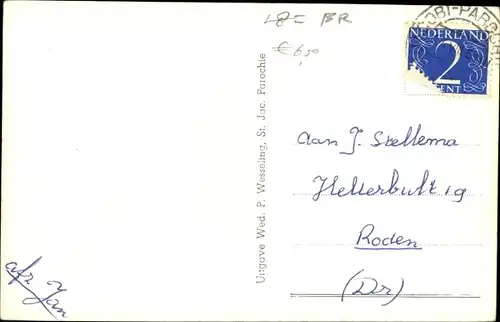 L8= BR
€ 6,50
OBI-PAROCHI
NEDERLAND
2
CENT
Uitgave Wed. P. Wesseling, St. Jac. Parochie
aan J. Stellema
Helterbult 19
Roden
(Dr)
afz Jan